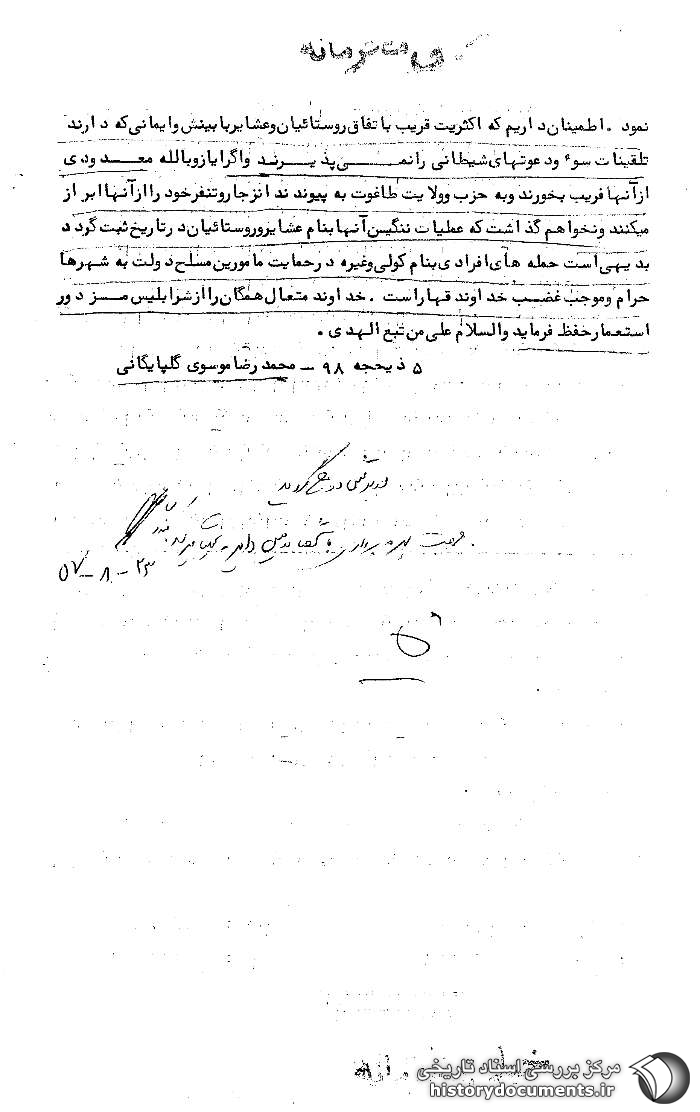 نمود . اطمینان داریم که اکثریت قریب باتفاق روستائیان وعشایربابینش وایمانی که دارند
تلقینات سوء ودعوتهای شیطانی رانمی پذیرند واگرایازوبالله معدودی
ازآنها فریب بخورند وبه حزب وولایت طاغوت به پیوندند انزجاروتنفرخود راازآنهاابراز
میکنند ونخواهم گذاشت که عملیات ننگین آنهابنام عشایروروستائیان درتاریخ ثبت گردد
بدیهی است حمله های افرادی بنام کولی وغیره درحمایت مامورین مسلح دولت به شهرها
حرام وموجب غضب خداوند قهاراست . خداوند متعال همگان راازشرابلیس مزدور
استعمارحفظ فرماید والسلام علی من تبع الهدی .
۵ ذیحجه ۹۸ - محمد رضا موسوی گلپایگانی
۵۷-۸-۲۳
مرکز بررسی اسناد تاریخی
historydocuments.ir